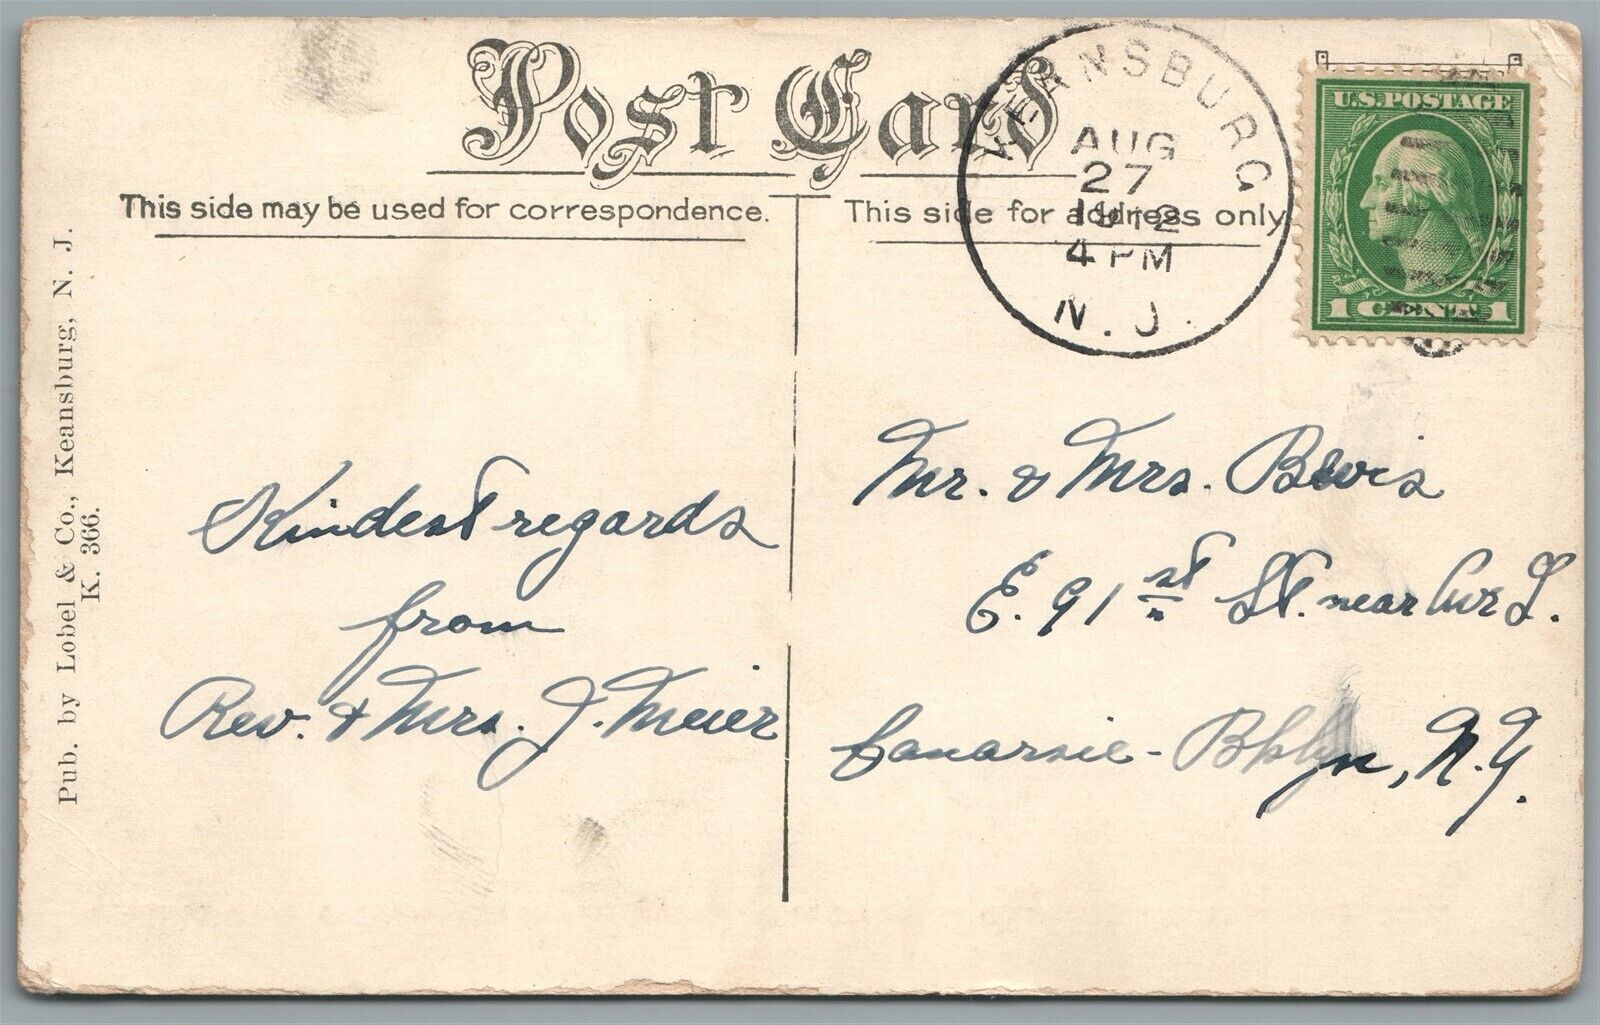 Post Card
This side may be used for correspondence.
This side for address only
KEANSBURG
AUG
27
1912
4 PM
N. J.
U.S. POSTAGE
1 CENT 1
Pub. by Lobel & Co., Keansburg, N. J.
K. 366.
Kindest regards
from
Rev. & Mrs. J. Meier
Mr. & Mrs. Bevis
E. 91st St. near Ave L.
Canarsie - Bklyn, N.Y.